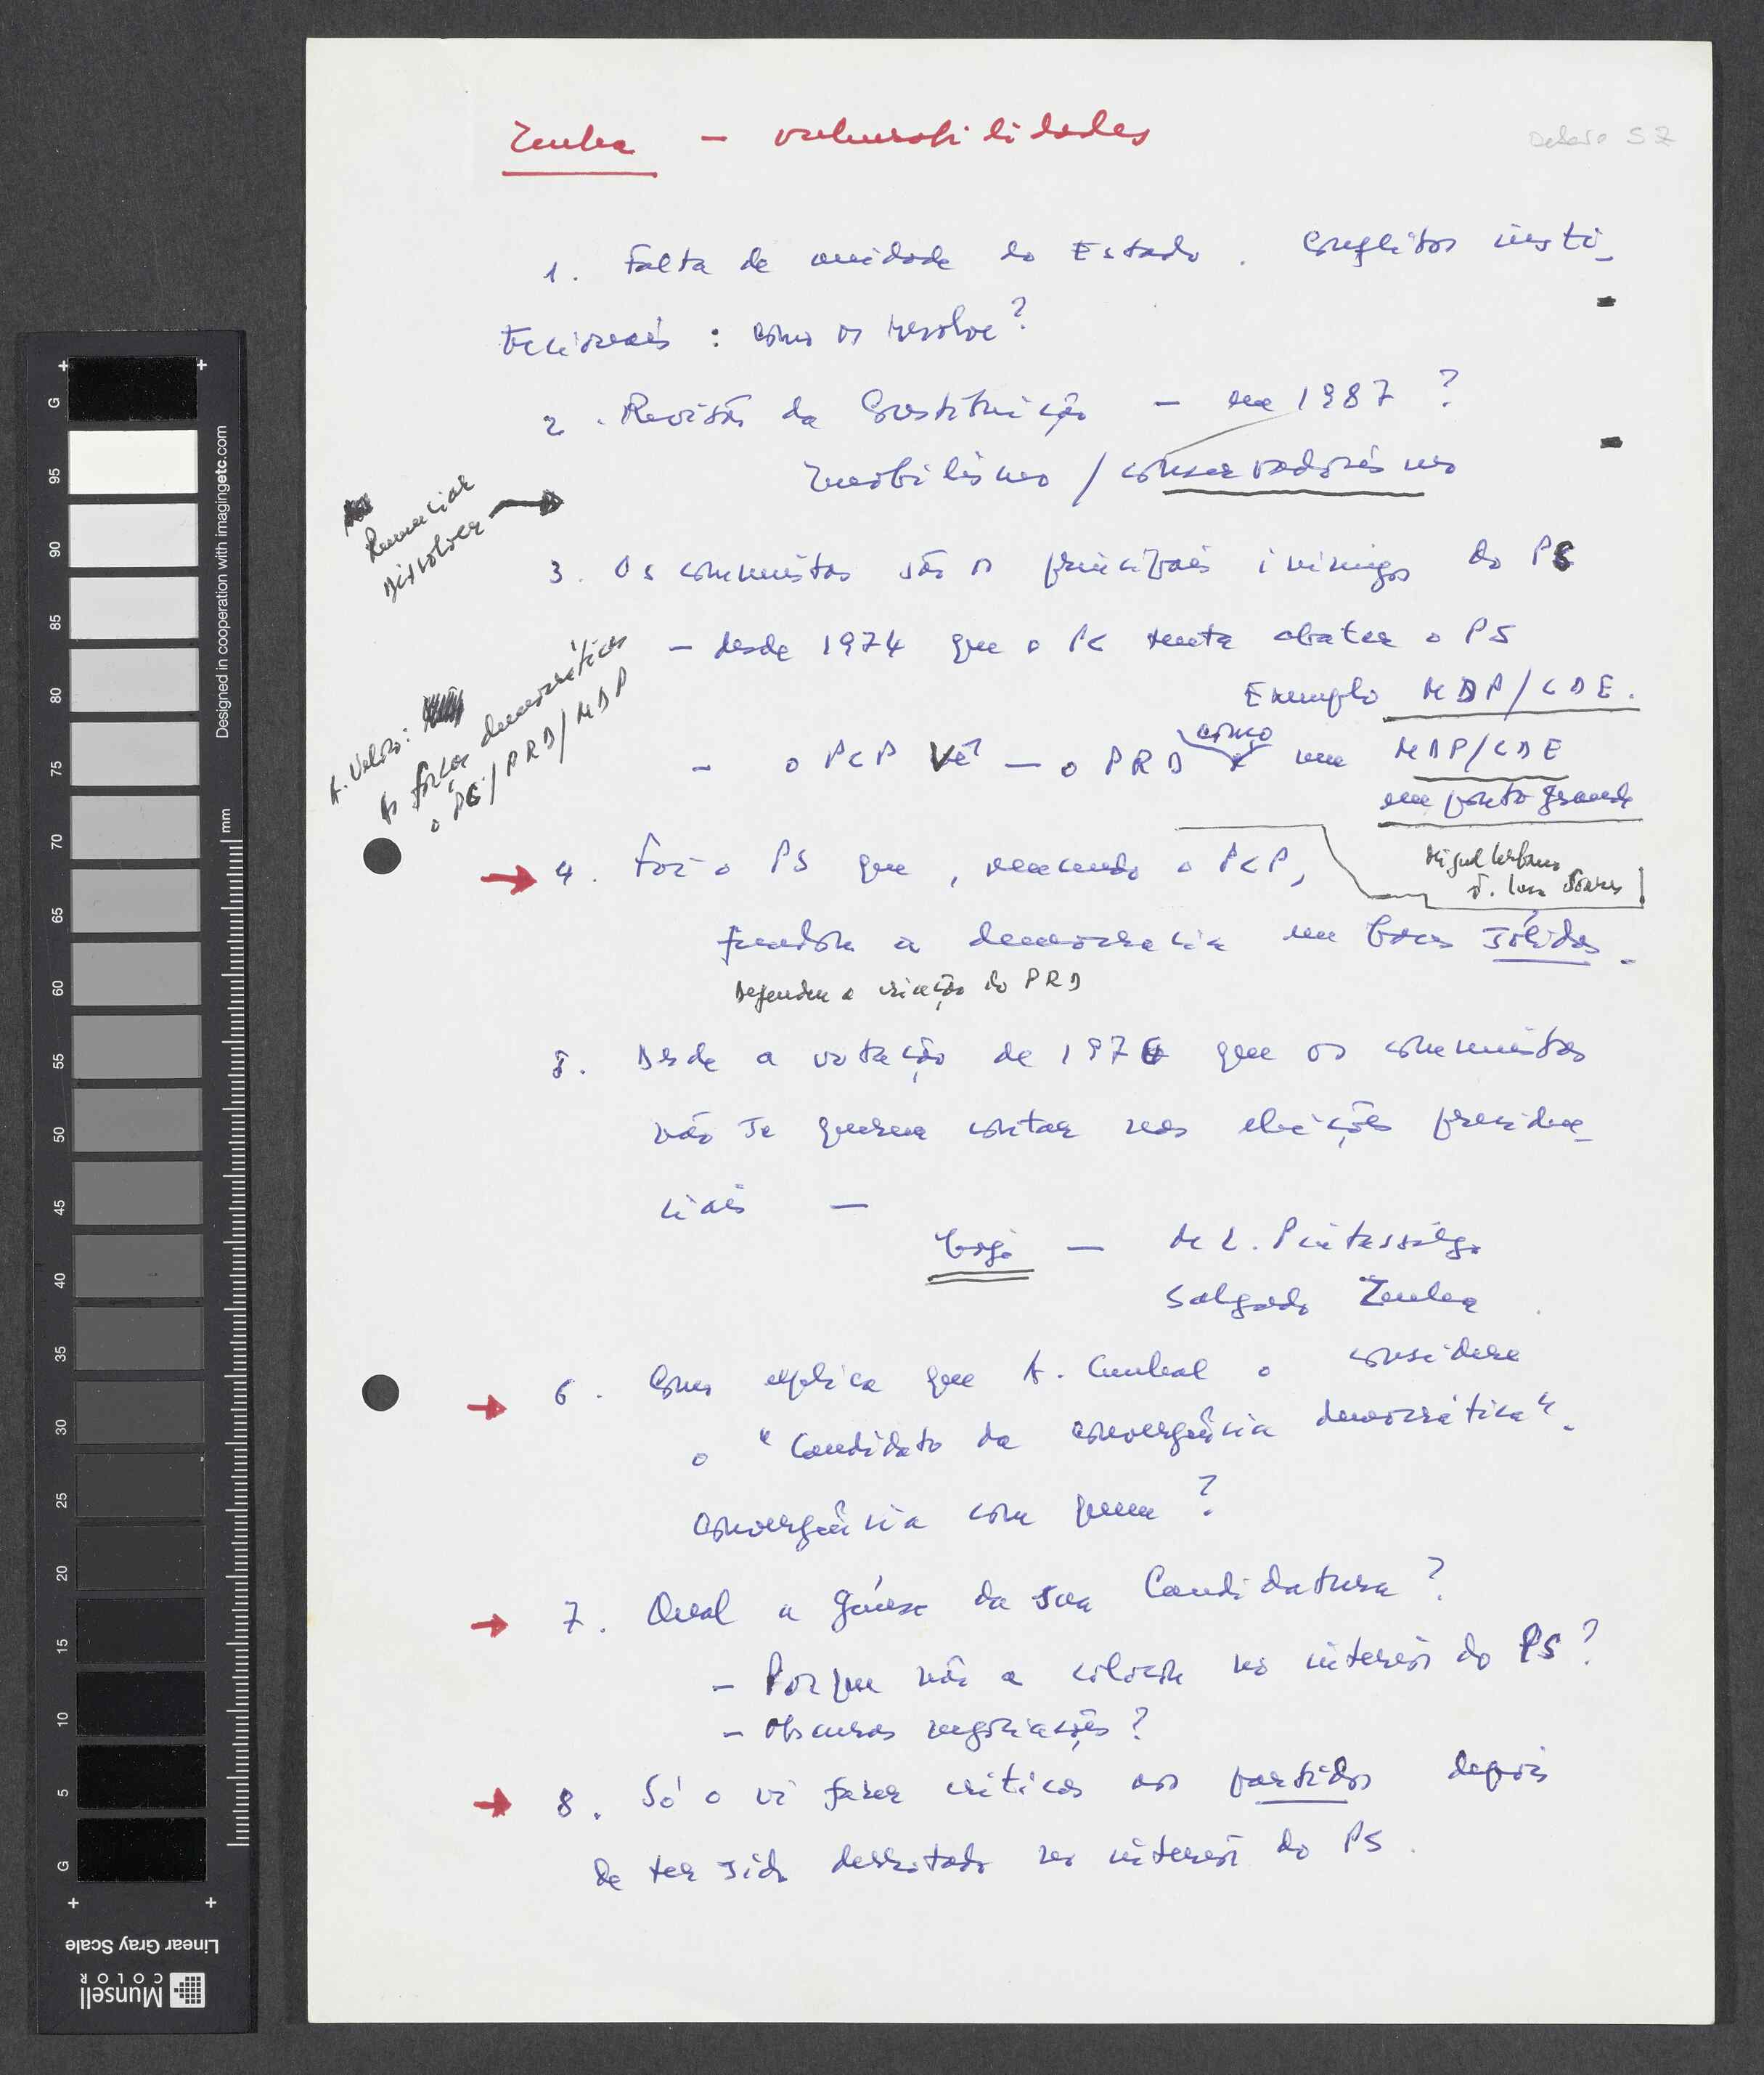 Zenha - vulnerabilidades
debate SZ
1. Falta de unidade do Estado. Conflitos insti-
tucionais : como os resolve?
2. Revisão da Constituição - em 1987 ?
Imobilismo / conservadorismo
Renunciar
Dissolver
3. Os comunistas são os principais inimigos do PS
- desde 1974 que o PC tenta abater o PS
Exemplo MDP/CDE.
- o PCP vê - o PRD como um MDP/CDE
em ponto grande
A. Veloso:
As forças democráticas
o PC/PRD/MDP
Miguel Urbano
4. Foi o PS que, vencendo o PCP,
fundou a democracia em bases sólidas.
Defendeu a criação do PRD
5. Desde a votação de 1976 que os comunistas
não se querem contar nas eleições presiden-
ciais -
Hoje - M. L. Pintassilgo
Salgado Zenha
6. Como explica que A. Cunhal o considere
o "Candidato da convergência democrática".
Convergência com quem ?
7. Qual a génese da sua Candidatura ?
- Porque não a colocou no interior do PS ?
- Obscuras negociações ?
8. Só o vi fazer críticas aos partidos depois
de ter sido derrotado no interior do PS.
Designed in cooperation with imagingetc.com
mm
G 95 90 85 80 75 70 65 60 55 50 45 40 35 30 25 20 15 10 5 G
Linear Gray Scale
Munsell
COLOR